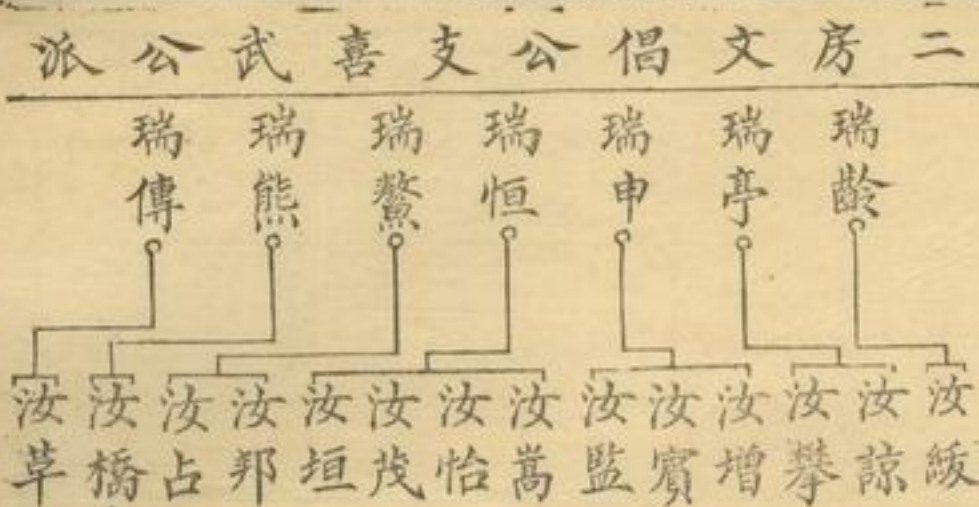 二房文倡公支喜武公派
瑞齡 瑞亭 瑞申 瑞恒 瑞鰲 瑞熊 瑞傳
汝 汝諒 汝攀 汝增 汝賓 汝監 汝嵩 汝怡 汝茂 汝垣 汝邦 汝占 汝橋 汝草